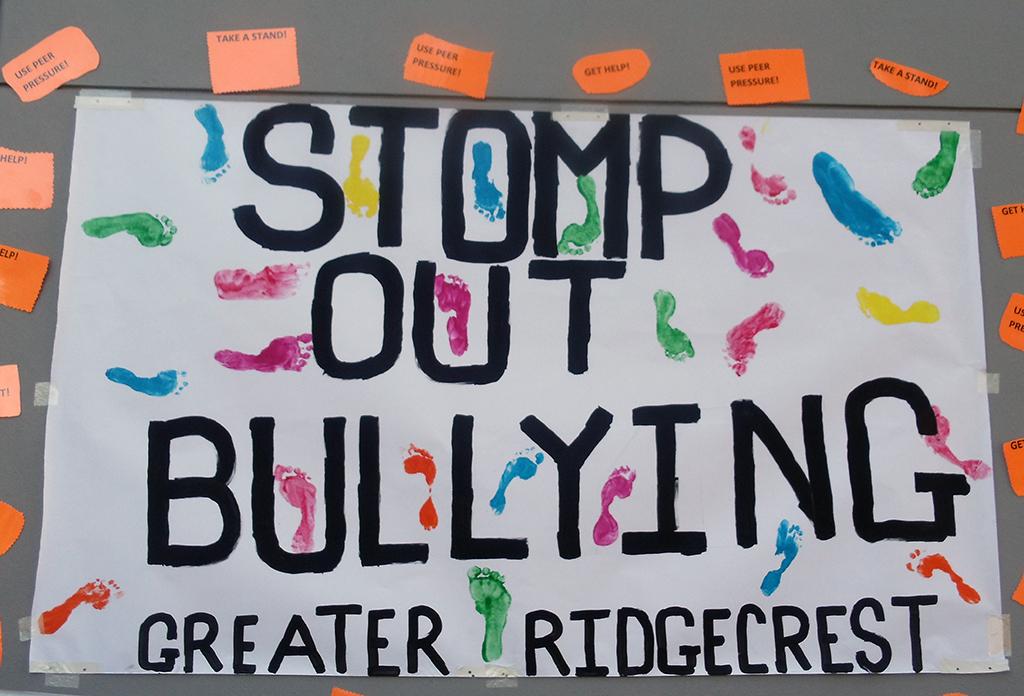 USE PEER
PRESSURE!
TAKE A STAND!
USE PEER
PRESSURE!
GET HELP!
USE PEER
PRESSURE!
TAKE A STAND!
HELP!
STOMP
OUT
BULLYING
GREATER RIDGECREST